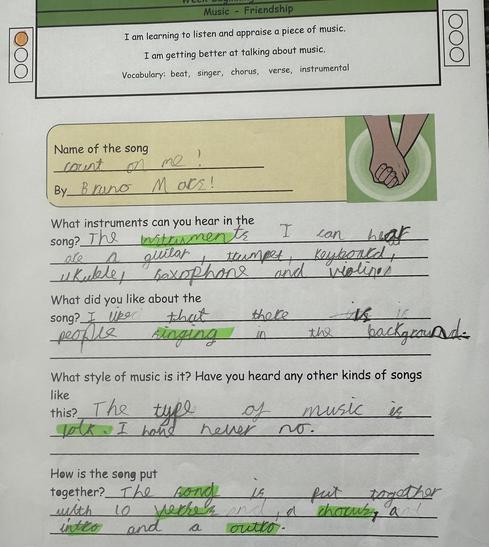 Music - Friendship
I am learning to listen and appraise a piece of music.
I am getting better at talking about music.
Vocabulary: beat, singer, chorus, verse, instrumental
Name of the song
count on me!
By Bruno Mars!
What instruments can you hear in the
song? The instruments I can hear
are a guitar, trumpet, keyboard,
ukubles, saxophone and violines
What did you like about the
song? I like that there is
people singing in the background.
What style of music is it? Have you heard any other kinds of songs
like
this? The type of music is
folk. I have never no.
How is the song put
together? The song is put together
with 10 verses and, a chorus, an
intro and a outro.